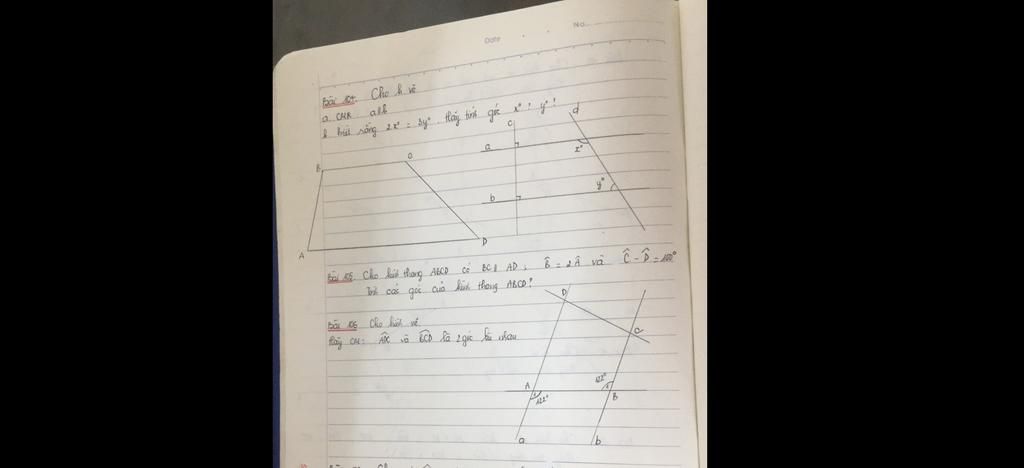 Date
No.
Bài 104. Cho h vẽ
a. CMR a//b
b biết rằng 2x° = 3y°. Hãy tính góc x°? y°?
c
d
a
x°
b
y°
B
C
A
D
Bài 105. Cho hình thang ABCD có BC // AD, B̂ = 2Â và Ĉ - D̂ =
Tính các góc của hình thang ABCD?
Bài 106 Cho hình vẽ
Hãy CM: và BCD là 2 góc bù nhau
D
C
A
122°
122°
B
a
b